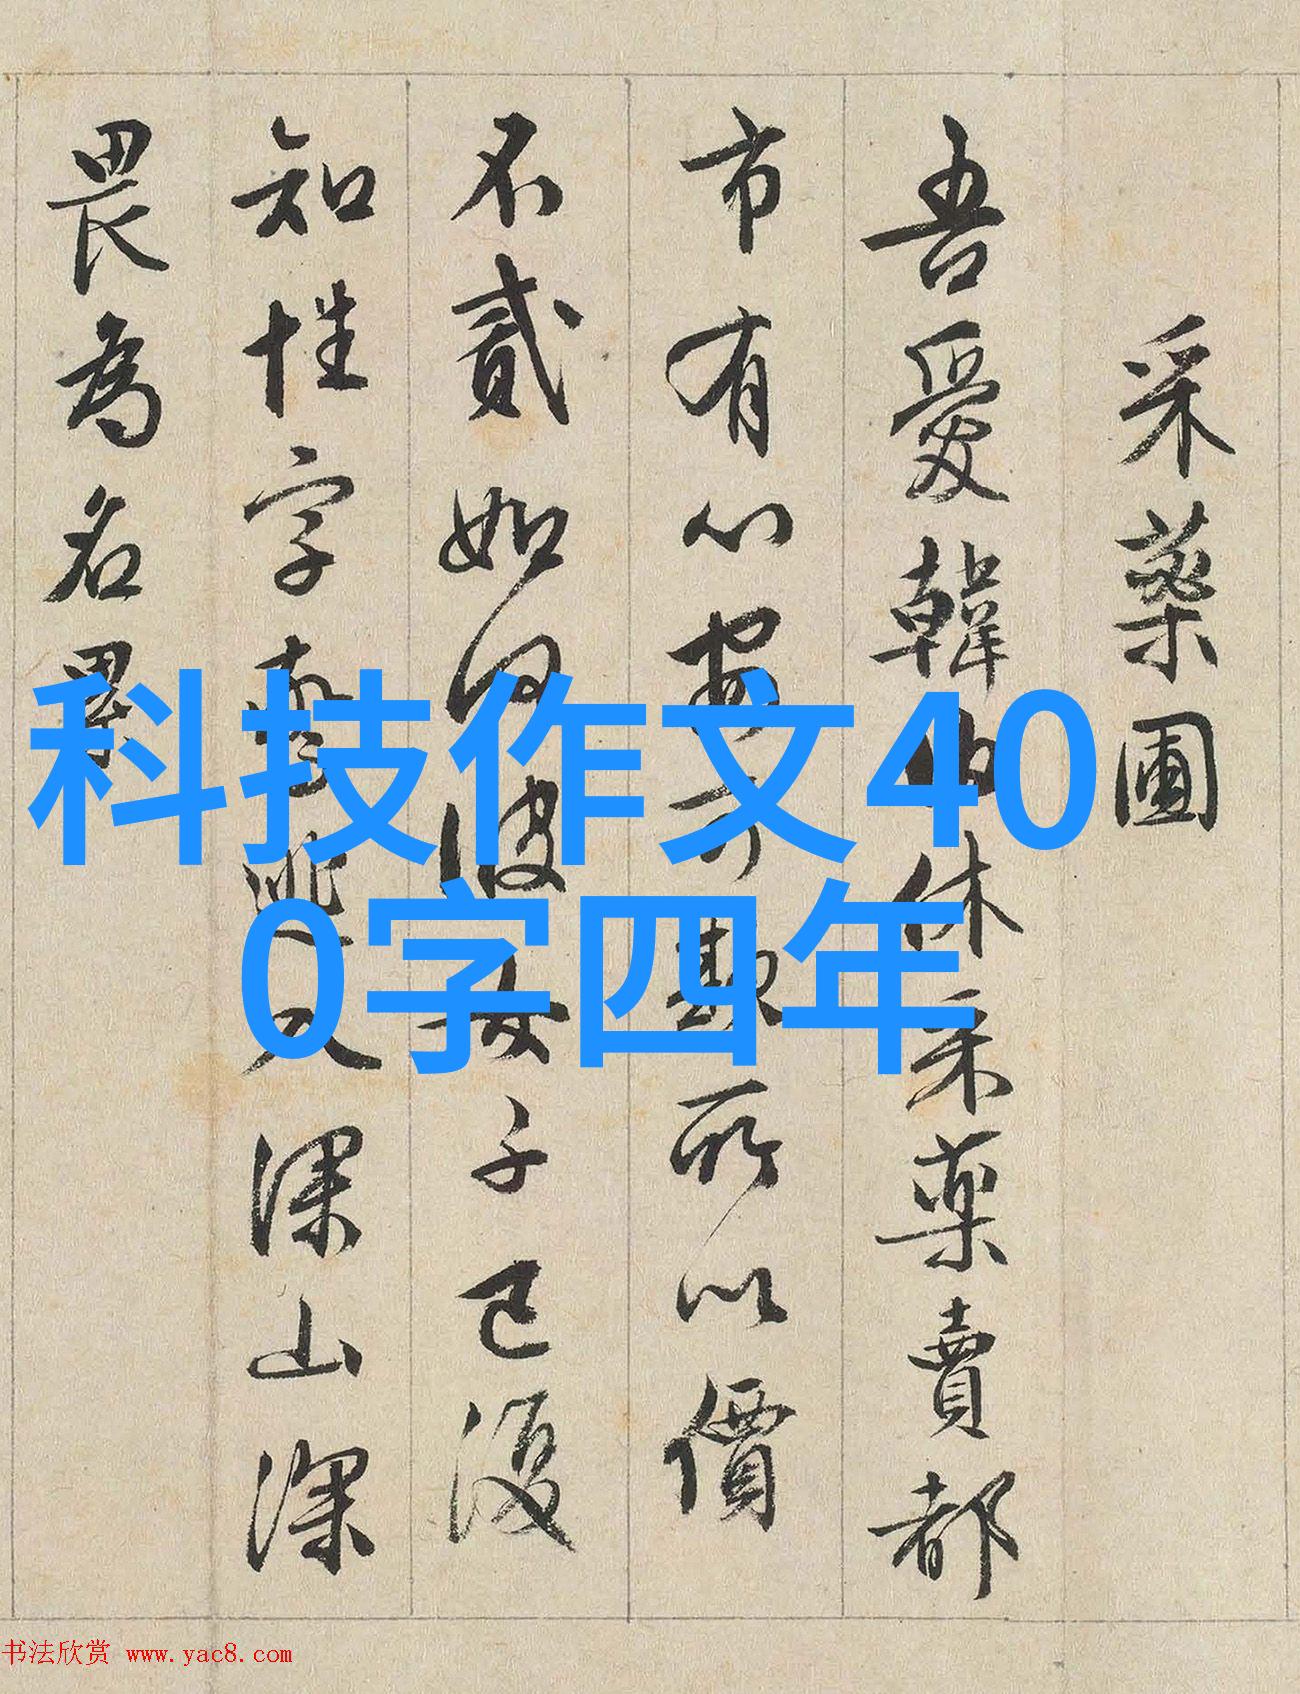 采藥圃
吾愛韓伯休采藥賣都
市有心安可欺所以價
不貳如何彼女子已復
知姓字驚逃入深山深
畏為名累
科技作文40
0字四年
书法欣赏 www.yac8.com